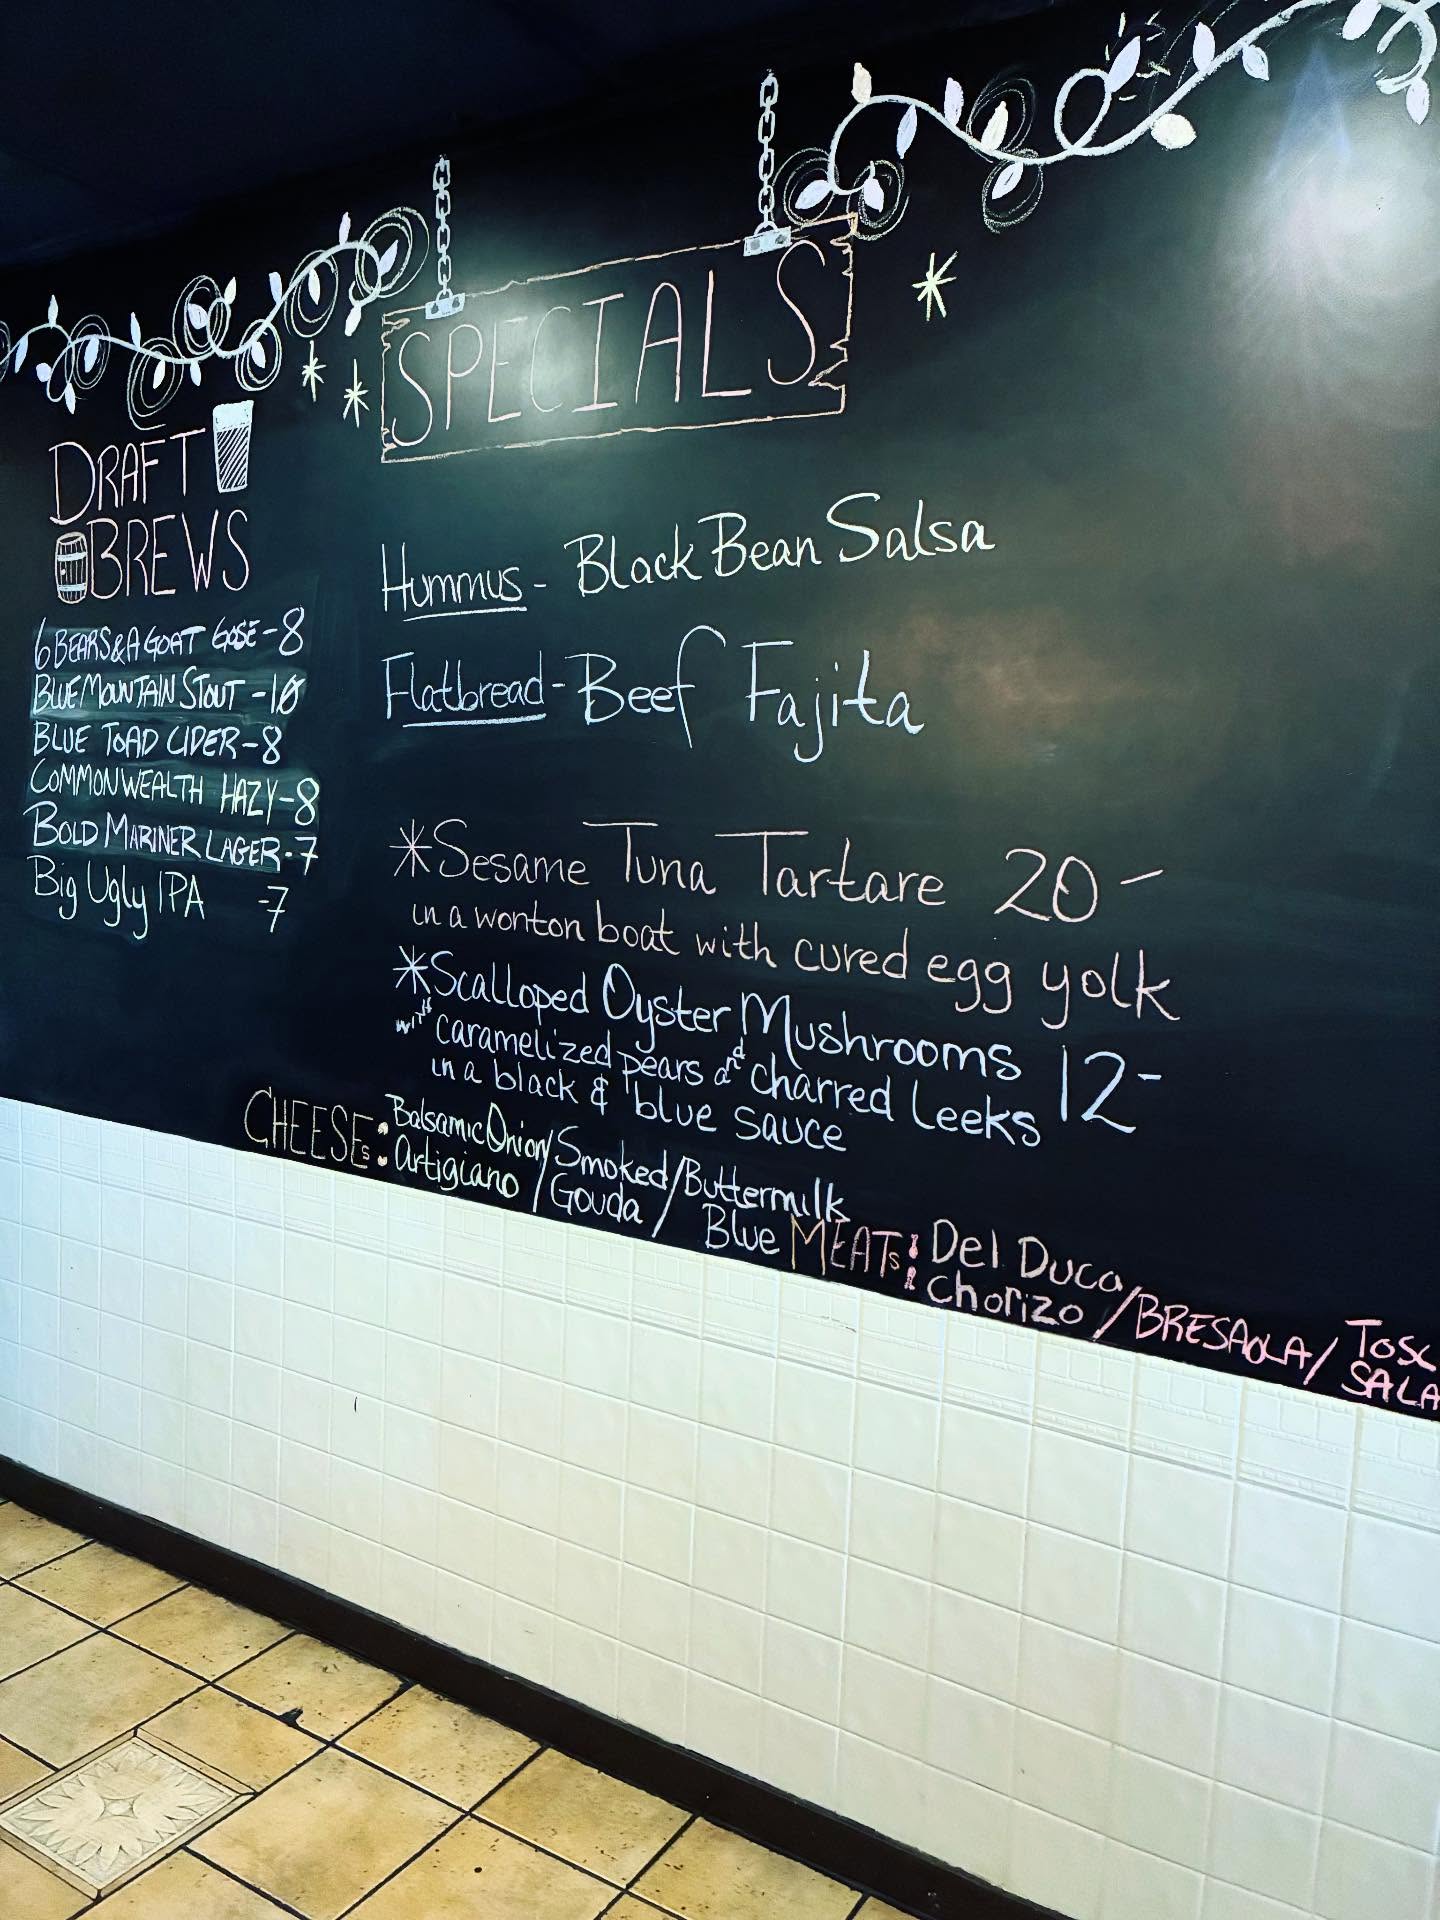 SPECIALS
DRAFT
BREWS
6 BEARS & A GOAT GOSE - 8
BLUE MOUNTAIN STOUT - 10
BLUE TOAD CIDER - 8
COMMONWEALTH HAZY - 8
BOLD MARINER LAGER - 7
Big Ugly IPA - 7
Hummus - Black Bean Salsa
Flatbread - Beef Fajita
* Sesame Tuna Tartare 20 -
in a wonton boat with cured egg yolk
* Scalloped Oyster Mushrooms 12 -
WITH caramelized pears and charred leeks
in a black & blue sauce
CHEESEs: Balsamic Onion / Smoked / Buttermilk
Artigiano / Gouda / Blue
MEATs: Del Duca / BRESAOLA / TOSC
Chorizo SALA